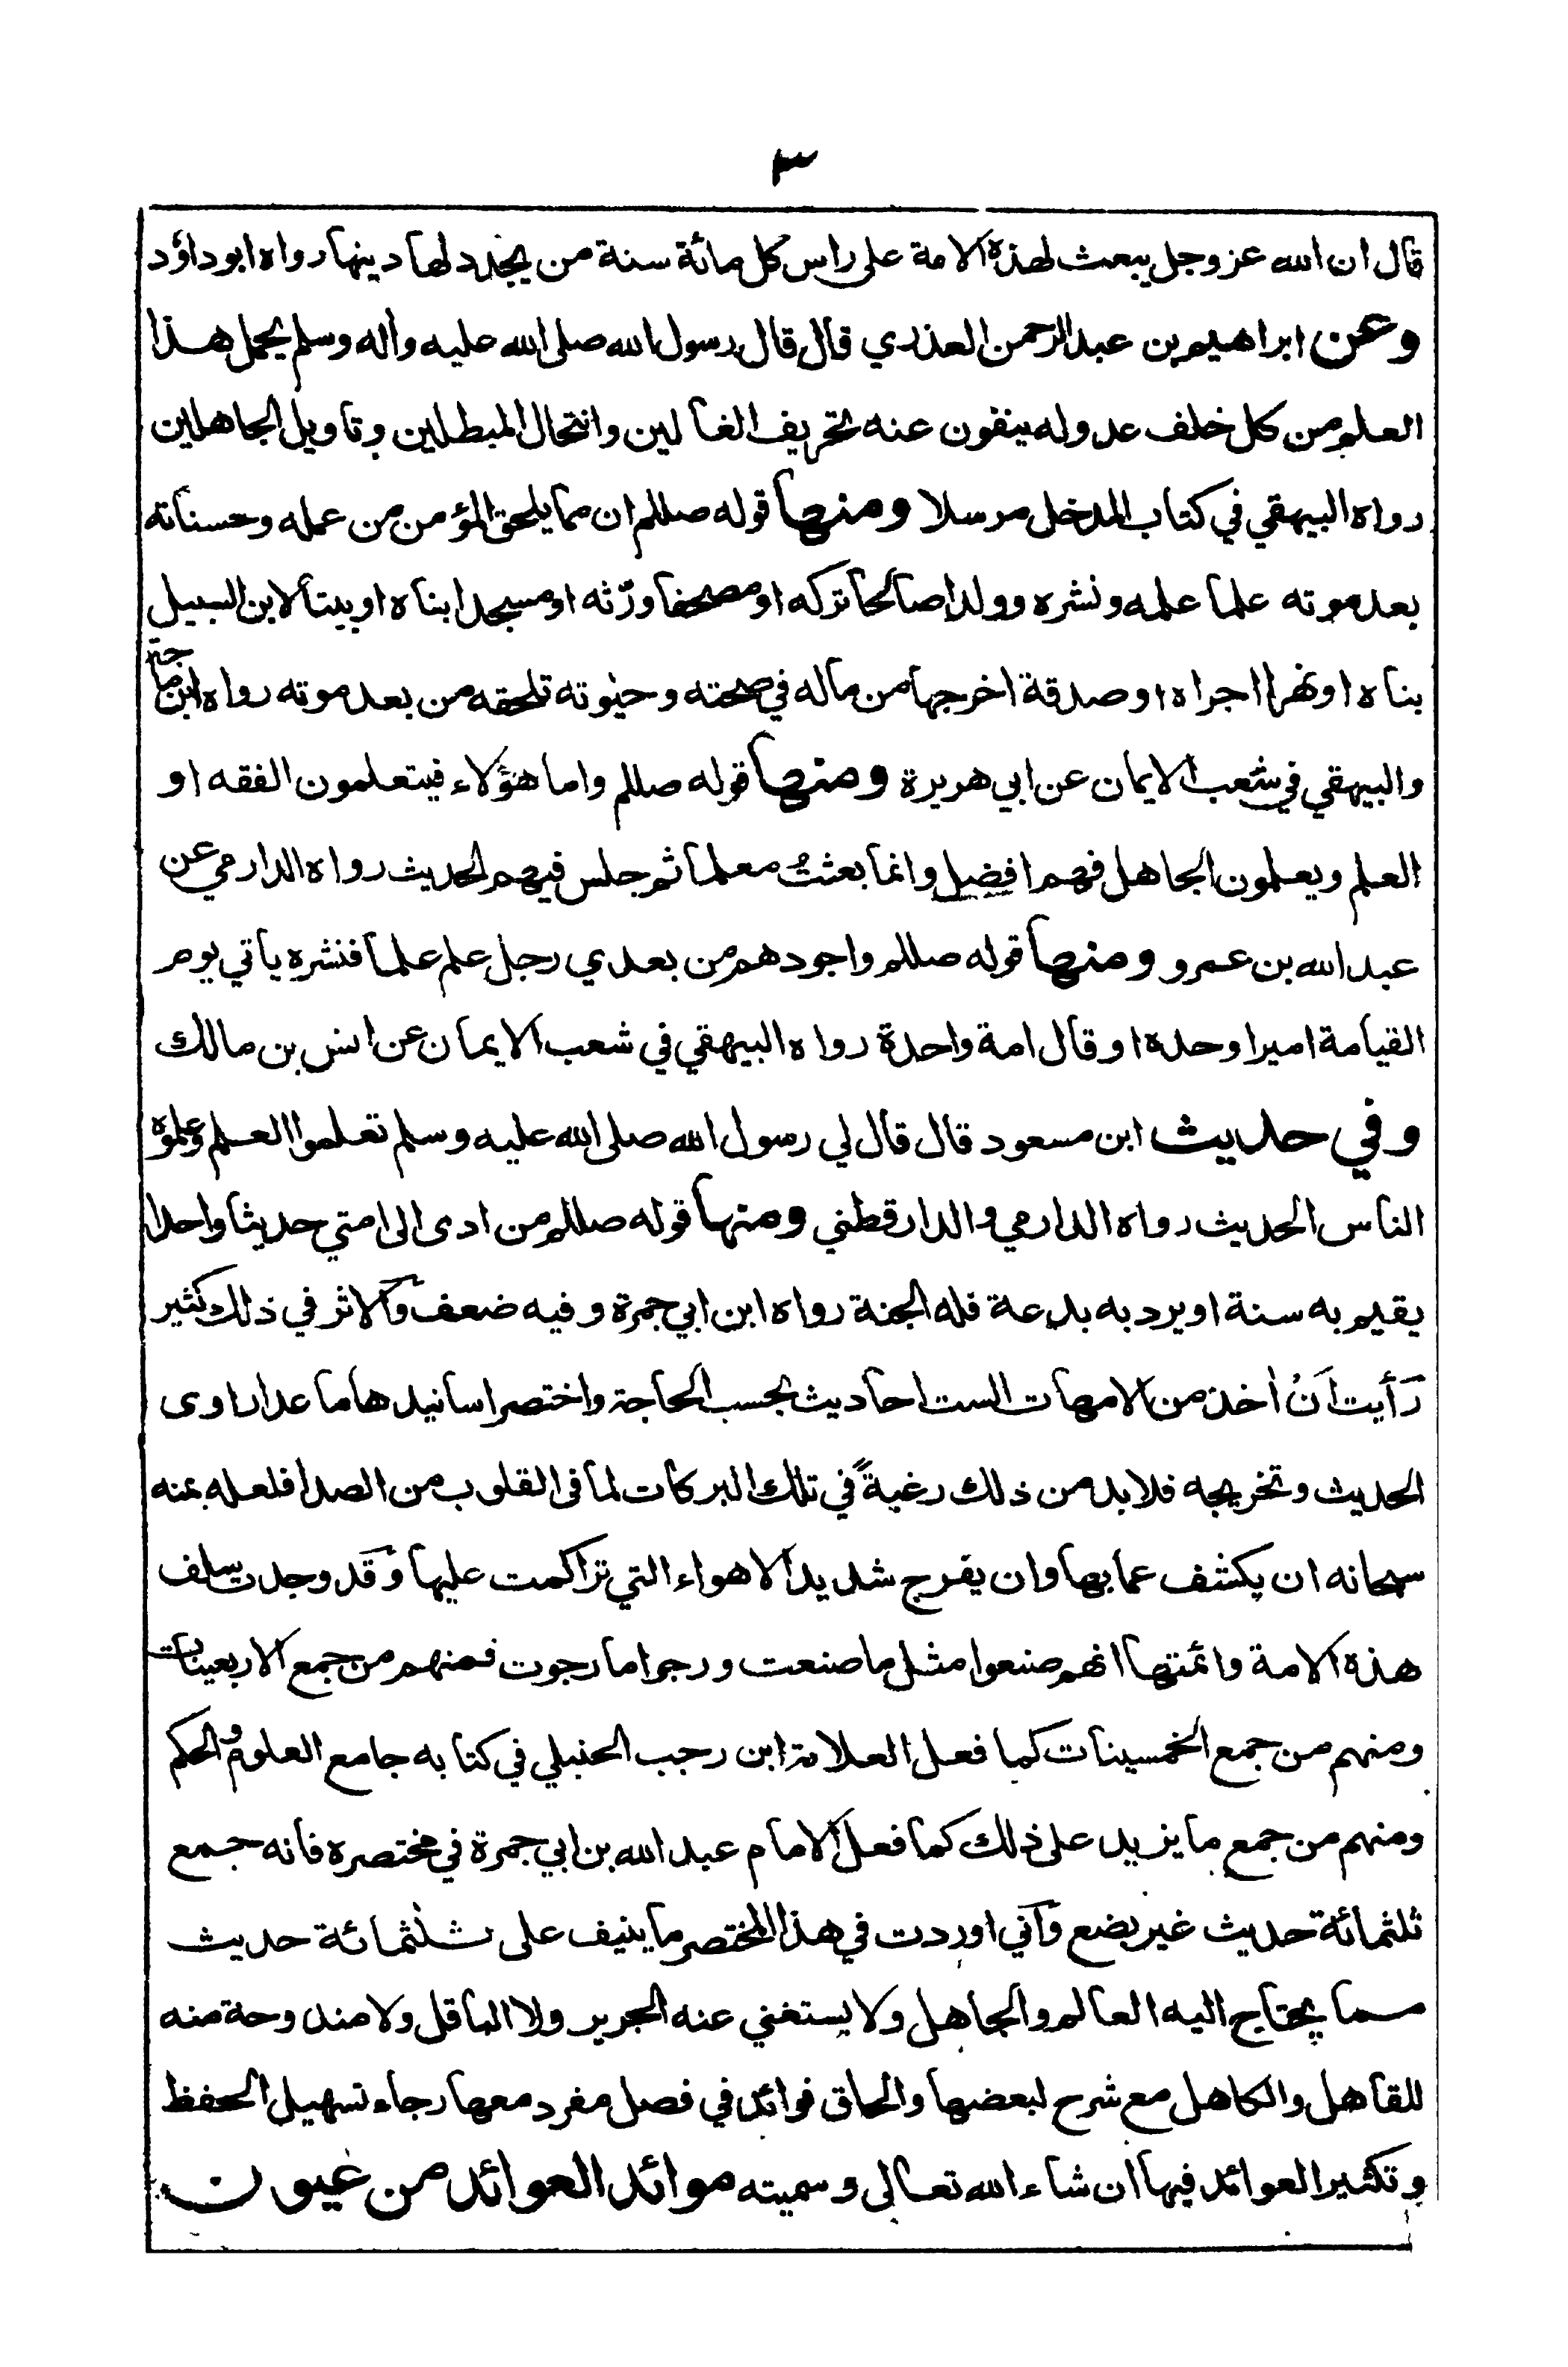 ٣
قال ان الله عز وجل يبعث لهذه الامة على راس كل مائة سنة من يجدد لها دينها رواه ابو داؤد
وعن ابراهيم بن عبد الرحمن العذري قال قال رسول الله صلى الله عليه واٰله وسلم يحمل هذا
العلم من كل خلف عدوله ينفون عنه تحريف الغالين وانتحال المبطلين وتاويل الجاهلين
رواه البيهقي في كتاب المدخل مرسلا ومنها قوله صللم ان مما يلحق المؤمن من عمله وحسناته
بعد موته علما علمه ونشره وولدا صالحا تركه او مصحفا ورّثه او مسجدا بناه او بيتا لابن السبيل
بناه او نهرا اجراه او صدقة اخرجها من ماله في صحته وحيٰوته تلحقه من بعد موته رواه ابن ماجة
والبيهقي في شعب الايمان عن ابي هريرة ومنها قوله صللم واما هؤلاء فيتعلمون الفقه او
العلم ويعلمون الجاهل فهم افضل وانما بعثتُ معلما ثم جلس فيهم الحديث رواه الدارمي عن
عبد الله بن عمرو ومنها قوله صللم واجودهم من بعدي رجل علم علما فنشره ياتي يوم
القيامة اميرا وحده او قال امة واحدة رواه البيهقي في شعب الايمان عن انس بن مالك
وفي حديث ابن مسعود قال قال لي رسول الله صلى الله عليه وسلم تعلموا العلم وعلموه
الناس الحديث رواه الدارمي والدارقطني ومنها قوله صللم من ادى الى امتي حديثا واحدا
يقيم به سنة او يرد به بدعة فله الجنة رواه ابن ابي جمرة وفيه ضعف وَالاثر في ذلك كثير
رَأيت اَنْ اٰخذ من الامهات الست احاديث بحسب الحاجة واختصر اسانيدها ما عدا راوى
الحديث وتخريجه فلا بد من ذلك رغبةً في تلك البركات لما فى القلوب من الصدا فلعله بمنه
سبحانه ان يكشف عما بها وان يفرج شديد الاهواء التي تراكمت عليها وَقد وجدت سلف
هذه الامة وائمتها انهم صنعوا مثل ما صنعت ورجوا ما رجوت فمنهم من جمع الاربعينات
ومنهم من جمع الخمسينات كما فعل العلامة ابن رجب الحنبلي في كتابه جامع العلوم والحكم
ومنهم من جمع ما يزيد على ذلك كما فعل الامام عبد الله بن ابي جمرة في مختصره فانه جمع
ثلثمائة حديث غير بضع وَاني اوردت في هذا المختصر ما ينيف على ثلٰثمائة حديث
مما يحتاج اليه العالم والجاهل ولا يستغني عنه الحرير ولا الماقل ولا مندوحة منه
للقاهل والكاهل مع شرح لبعضها والحاق فوائد في فصل مفرد معها رجاء تسهيل الحفظ
وتكثير العوائد فيها ان شاء الله تعالى وسميته موائد العوائد من عيون